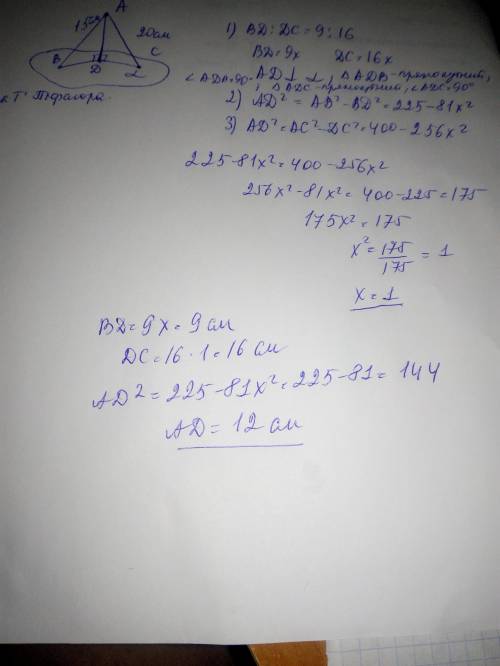 A
15см
20см
B
C
D
α
Т. Пифагора.
1) BD : DC = 9 : 16
BD = 9x DC = 16x
∠ADB=90° AD ⊥ α, △ADB - прямоугольный,
△ADC - прямоугольный, ∠ADC=90°
2) AD² = AB² - BD² = 225 - 81x²
3) AD² = AC² - DC² = 400 - 256x²
225 - 81x² = 400 - 256x²
256x² - 81x² = 400 - 225 = 175
175x² = 175
x² = 175/175 = 1
x = 1
BD = 9x = 9 см
DC = 16 · 1 = 16 см
AD² = 225 - 81x² = 225 - 81 = 144
AD = 12 см